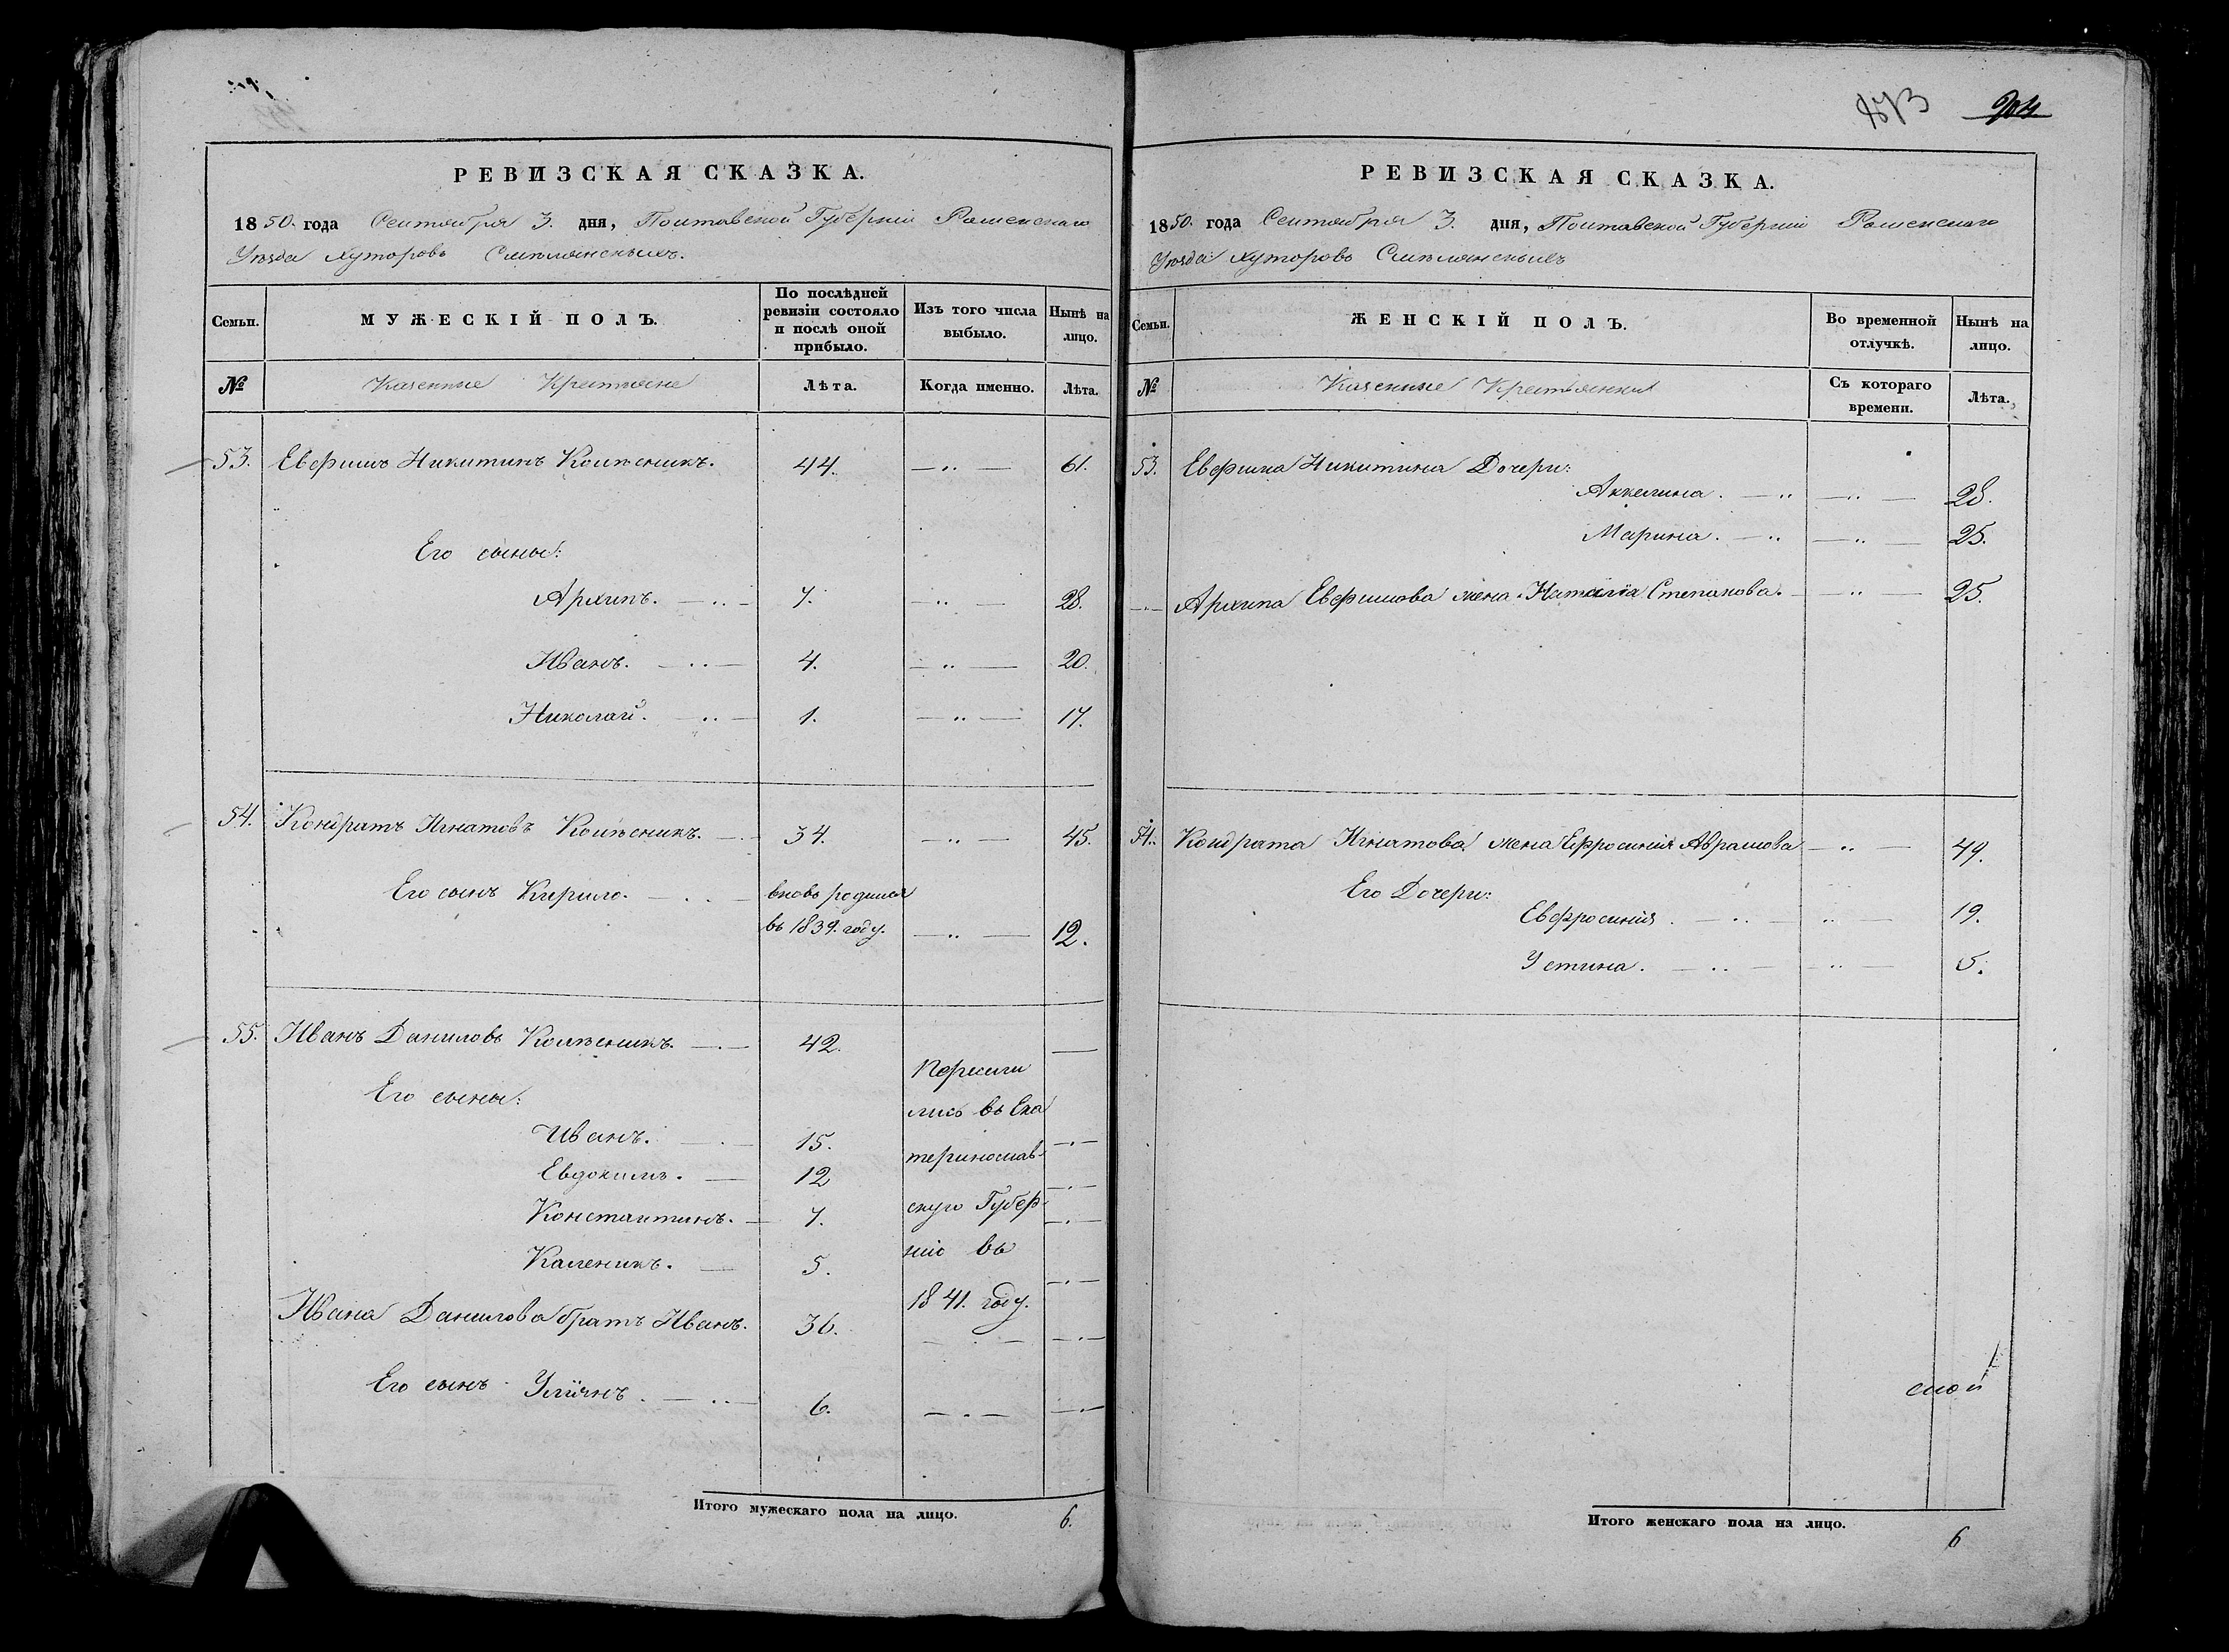 РЕВИЗСКАЯ СКАЗКА.
1850. года Сентября 3. дня, Полтавской Губерніи Роменскаго
Уѣзда хуторовъ Смѣлянскихъ.
Семьи.
МУЖЕСКІЙ ПОЛЪ.
По послѣдней
ревизіи состояло
и послѣ оной
прибыло.
Изъ того числа
выбыло.
Нынѣ на
лицо.
№
Казенные Крестьяне
Лѣта.
Когда именно.
Лѣта.
53. Евфимъ Никитинъ Колѣсникъ. 44. 61.
Его сыны:
Архипъ. 7. 28.
Иванъ. 4. 20.
Николай. 1. 17.
54. Кондратъ Игнатовъ Колѣсникъ. 34. 45.
Его сынъ Кирило. вновь родился
въ 1839. году. 12.
55. Иванъ Даниловъ Колѣсникъ. 42.
Пересели
Его сыны:
лись въ Ека
Иванъ. 15.
теринослав-
Евдокимъ. 12
скую Губер-
Константинъ. 7.
нію въ
Каленикъ. 5.
1841. году.
Ивана Данилова братъ Иванъ. 36.
Его сынъ Уліянъ. 6.
Итого мужескаго пола на лицо. 6.
РЕВИЗСКАЯ СКАЗКА.
1850. года Сентября 3. дня, Полтавской Губерніи Роменскаго
Уѣзда хуторовъ Смѣлянскихъ
Семьи.
ЖЕНСКІЙ ПОЛЪ.
Во временной
отлучкѣ.
Нынѣ на
лицо.
№
Казенные Крестьянки
Съ котораго
времени.
Лѣта.
53. Евфима Никитина Дочери:
Аккелина. 28.
Марина. 25.
Архипа Евфимова жена Наталія Степанова. 25.
54. Кондрата Игнатова жена Ефросинія Аврамова 49.
Его Дочери:
Евфросинія. 19.
Устина. 5.
Итого женскаго пола на лицо. 6